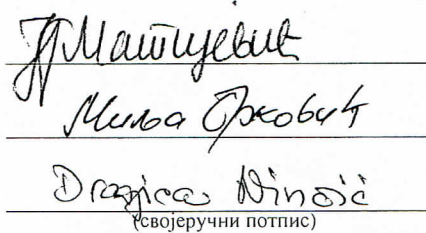 Матијевић
Миља
Dragica Ninčić
(својеручни потпис)